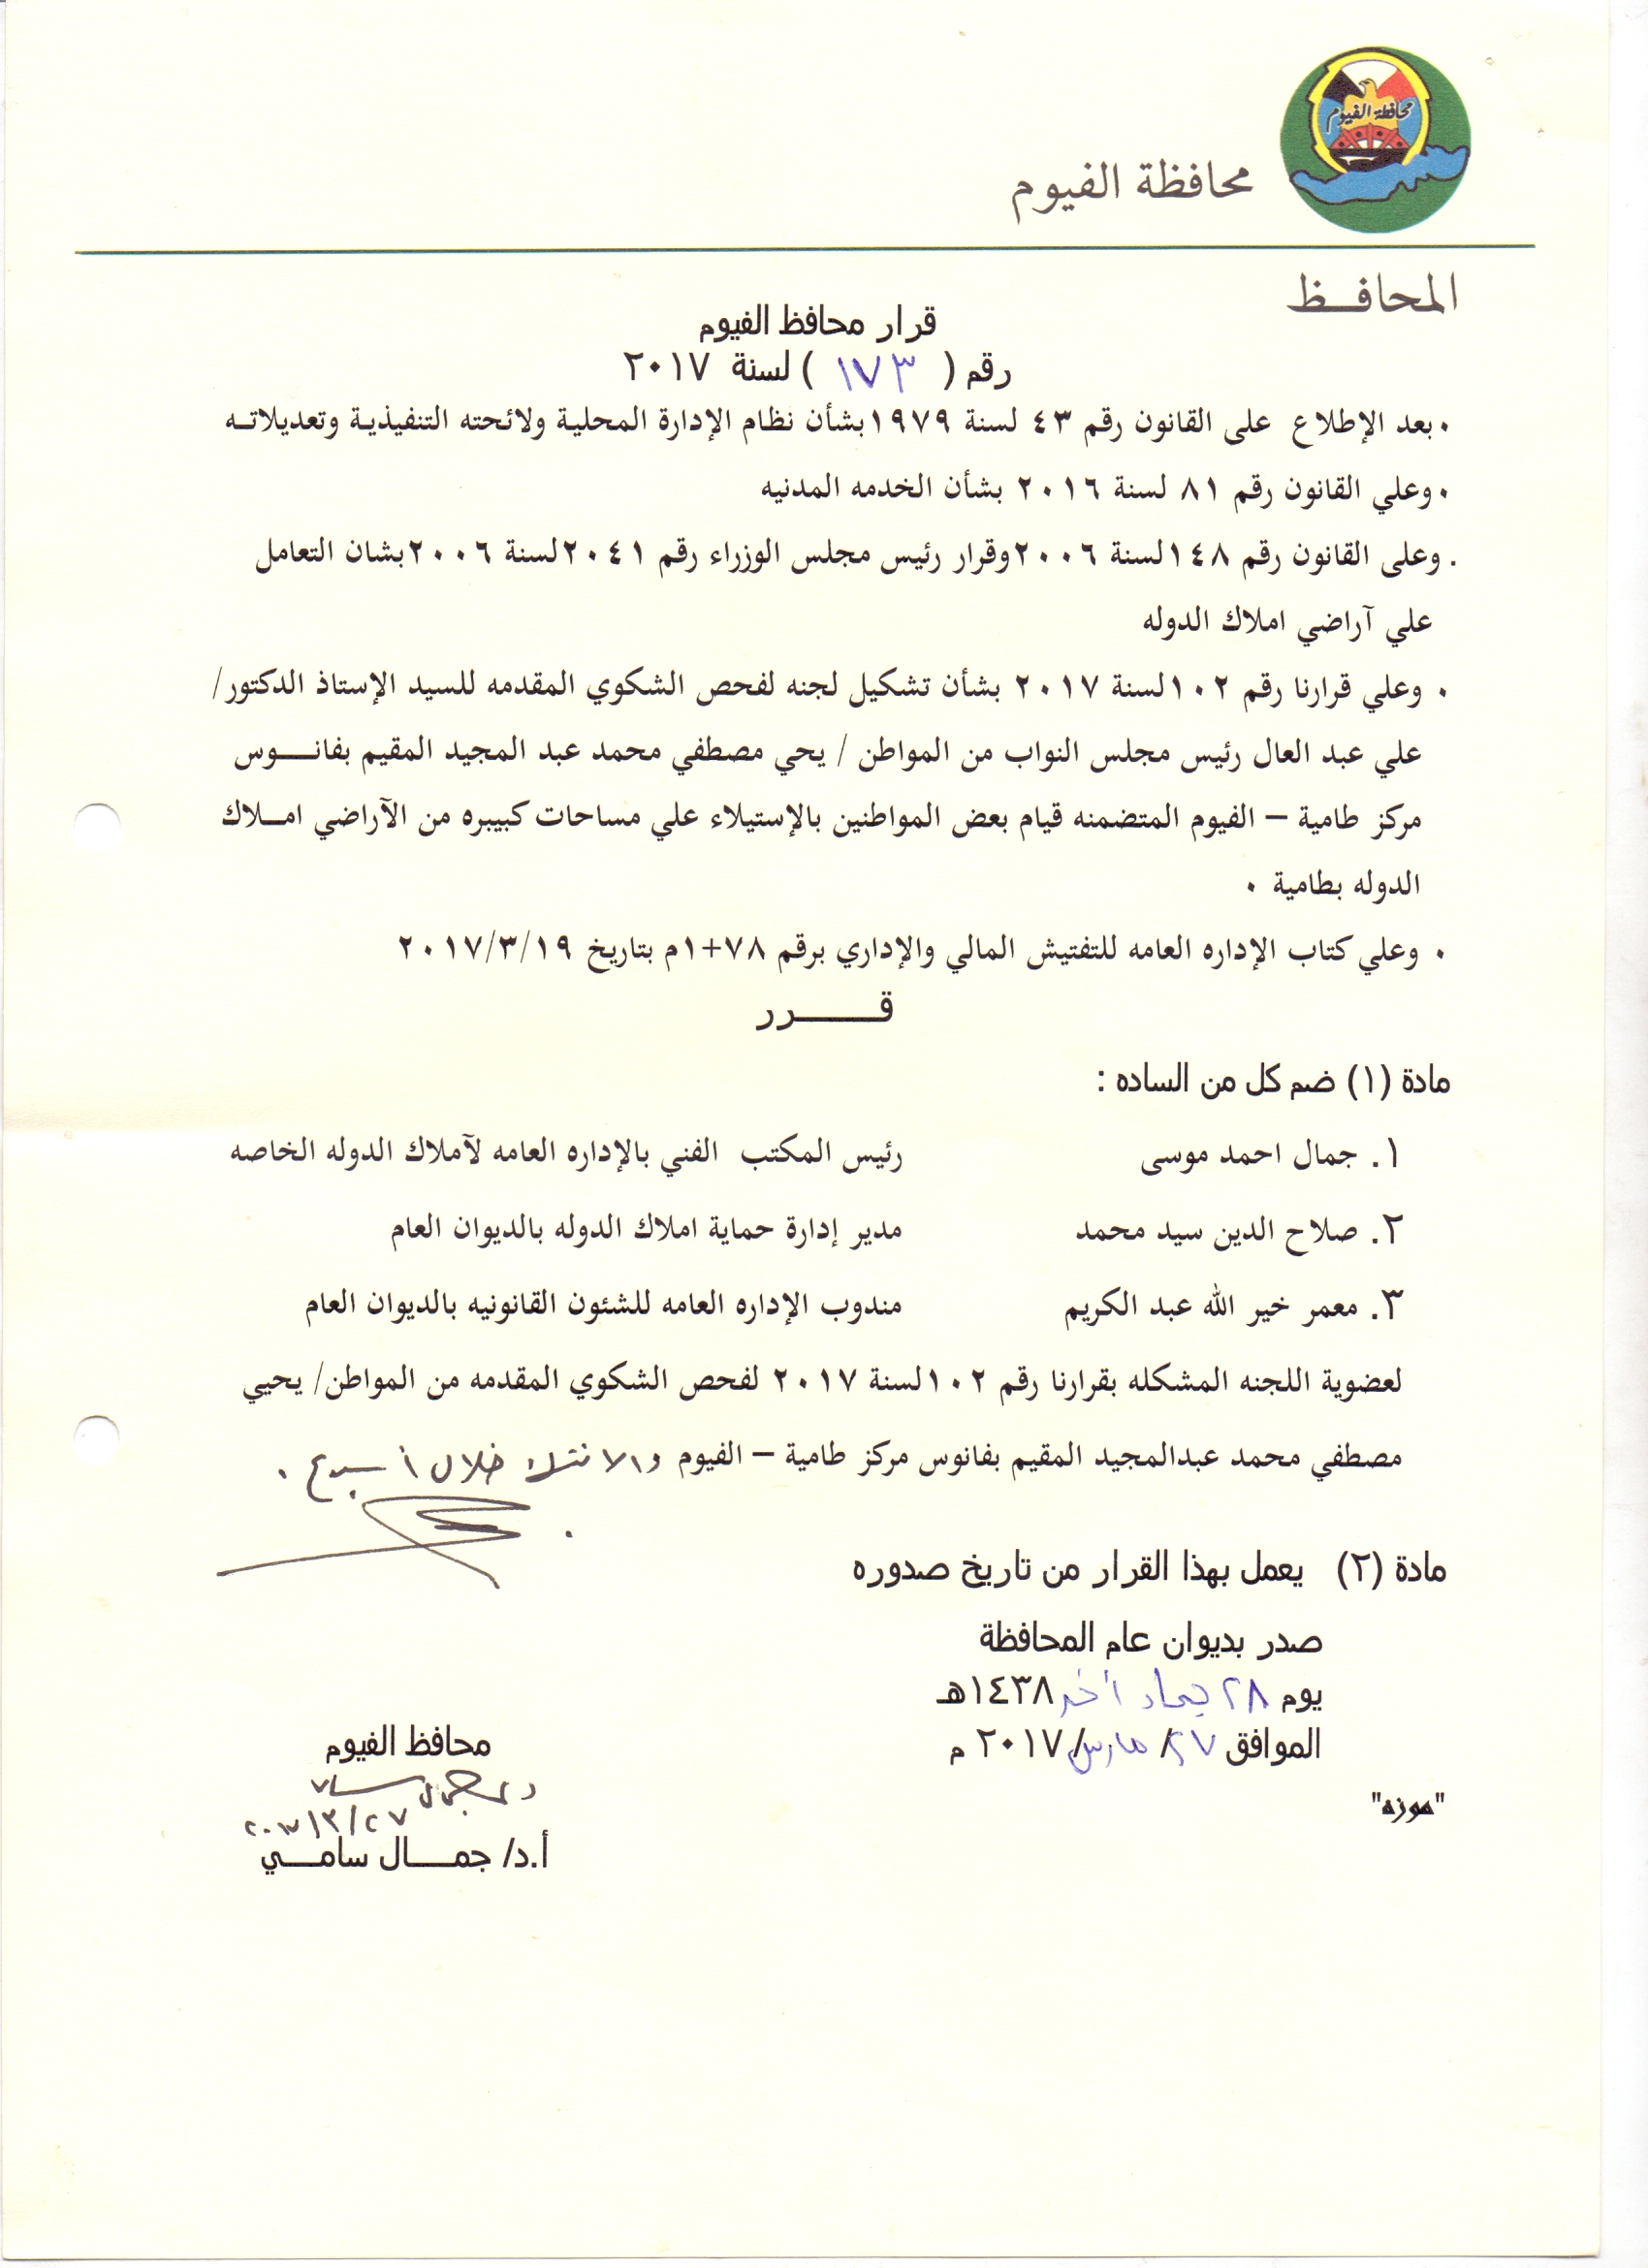 محافظة الفيوم
محافظة الفيوم
المحافــظ
قرار محافظ الفيوم
رقم ( ١٧٣ ) لسنة ٢٠١٧
٠ بعد الإطلاع على القانون رقم ٤٣ لسنة ١٩٧٩بشأن نظام الإدارة المحلية ولائحته التنفيذية وتعديلاته
٠ وعلي القانون رقم ٨١ لسنة ٢٠١٦ بشأن الخدمه المدنيه
. وعلى القانون رقم ١٤٨لسنة ٢٠٠٦وقرار رئيس مجلس الوزراء رقم ٢٠٤١لسنة ٢٠٠٦بشان التعامل
علي آراضي املاك الدوله
٠ وعلي قرارنا رقم ١٠٢لسنة ٢٠١٧ بشأن تشكيل لجنه لفحص الشكوي المقدمه للسيد الإستاذ الدكتور/
علي عبد العال رئيس مجلس النواب من المواطن / يحي مصطفي محمد عبد المجيد المقيم بفانــوس
مركز طامية – الفيوم المتضمنه قيام بعض المواطنين بالإستيلاء علي مساحات كبيبره من الآراضي امــلاك
الدوله بطامية ٠
٠ وعلي كتاب الإداره العامه للتفتيش المالي والإداري برقم ٧٨+١م بتاريخ ٢٠١٧/٣/١٩
قــــــرر
مادة (١) ضم كل من الساده :
١. جمال احمد موسى رئيس المكتب الفني بالإداره العامه لآملاك الدوله الخاصه
٢. صلاح الدين سيد محمد مدير إدارة حماية املاك الدوله بالديوان العام
٣. معمر خير الله عبد الكريم مندوب الإداره العامه للشئون القانونيه بالديوان العام
لعضوية اللجنه المشكله بقرارنا رقم ١٠٢لسنة ٢٠١٧ لفحص الشكوي المقدمه من المواطن/ يحيي
مصطفي محمد عبدالمجيد المقيم بفانوس مركز طامية – الفيوم خلال أسبوع .
مادة (٢) يعمل بهذا القرار من تاريخ صدوره
صدر بديوان عام المحافظة
يوم ٢٨ جماد أخر ١٤٣٨هـ
الموافق ٢٧/ مارس/ ٢٠١٧ م
محافظ الفيوم
٢٠١٧/٣/٢٧
أ.د/ جمــال سامــي
"موزه"